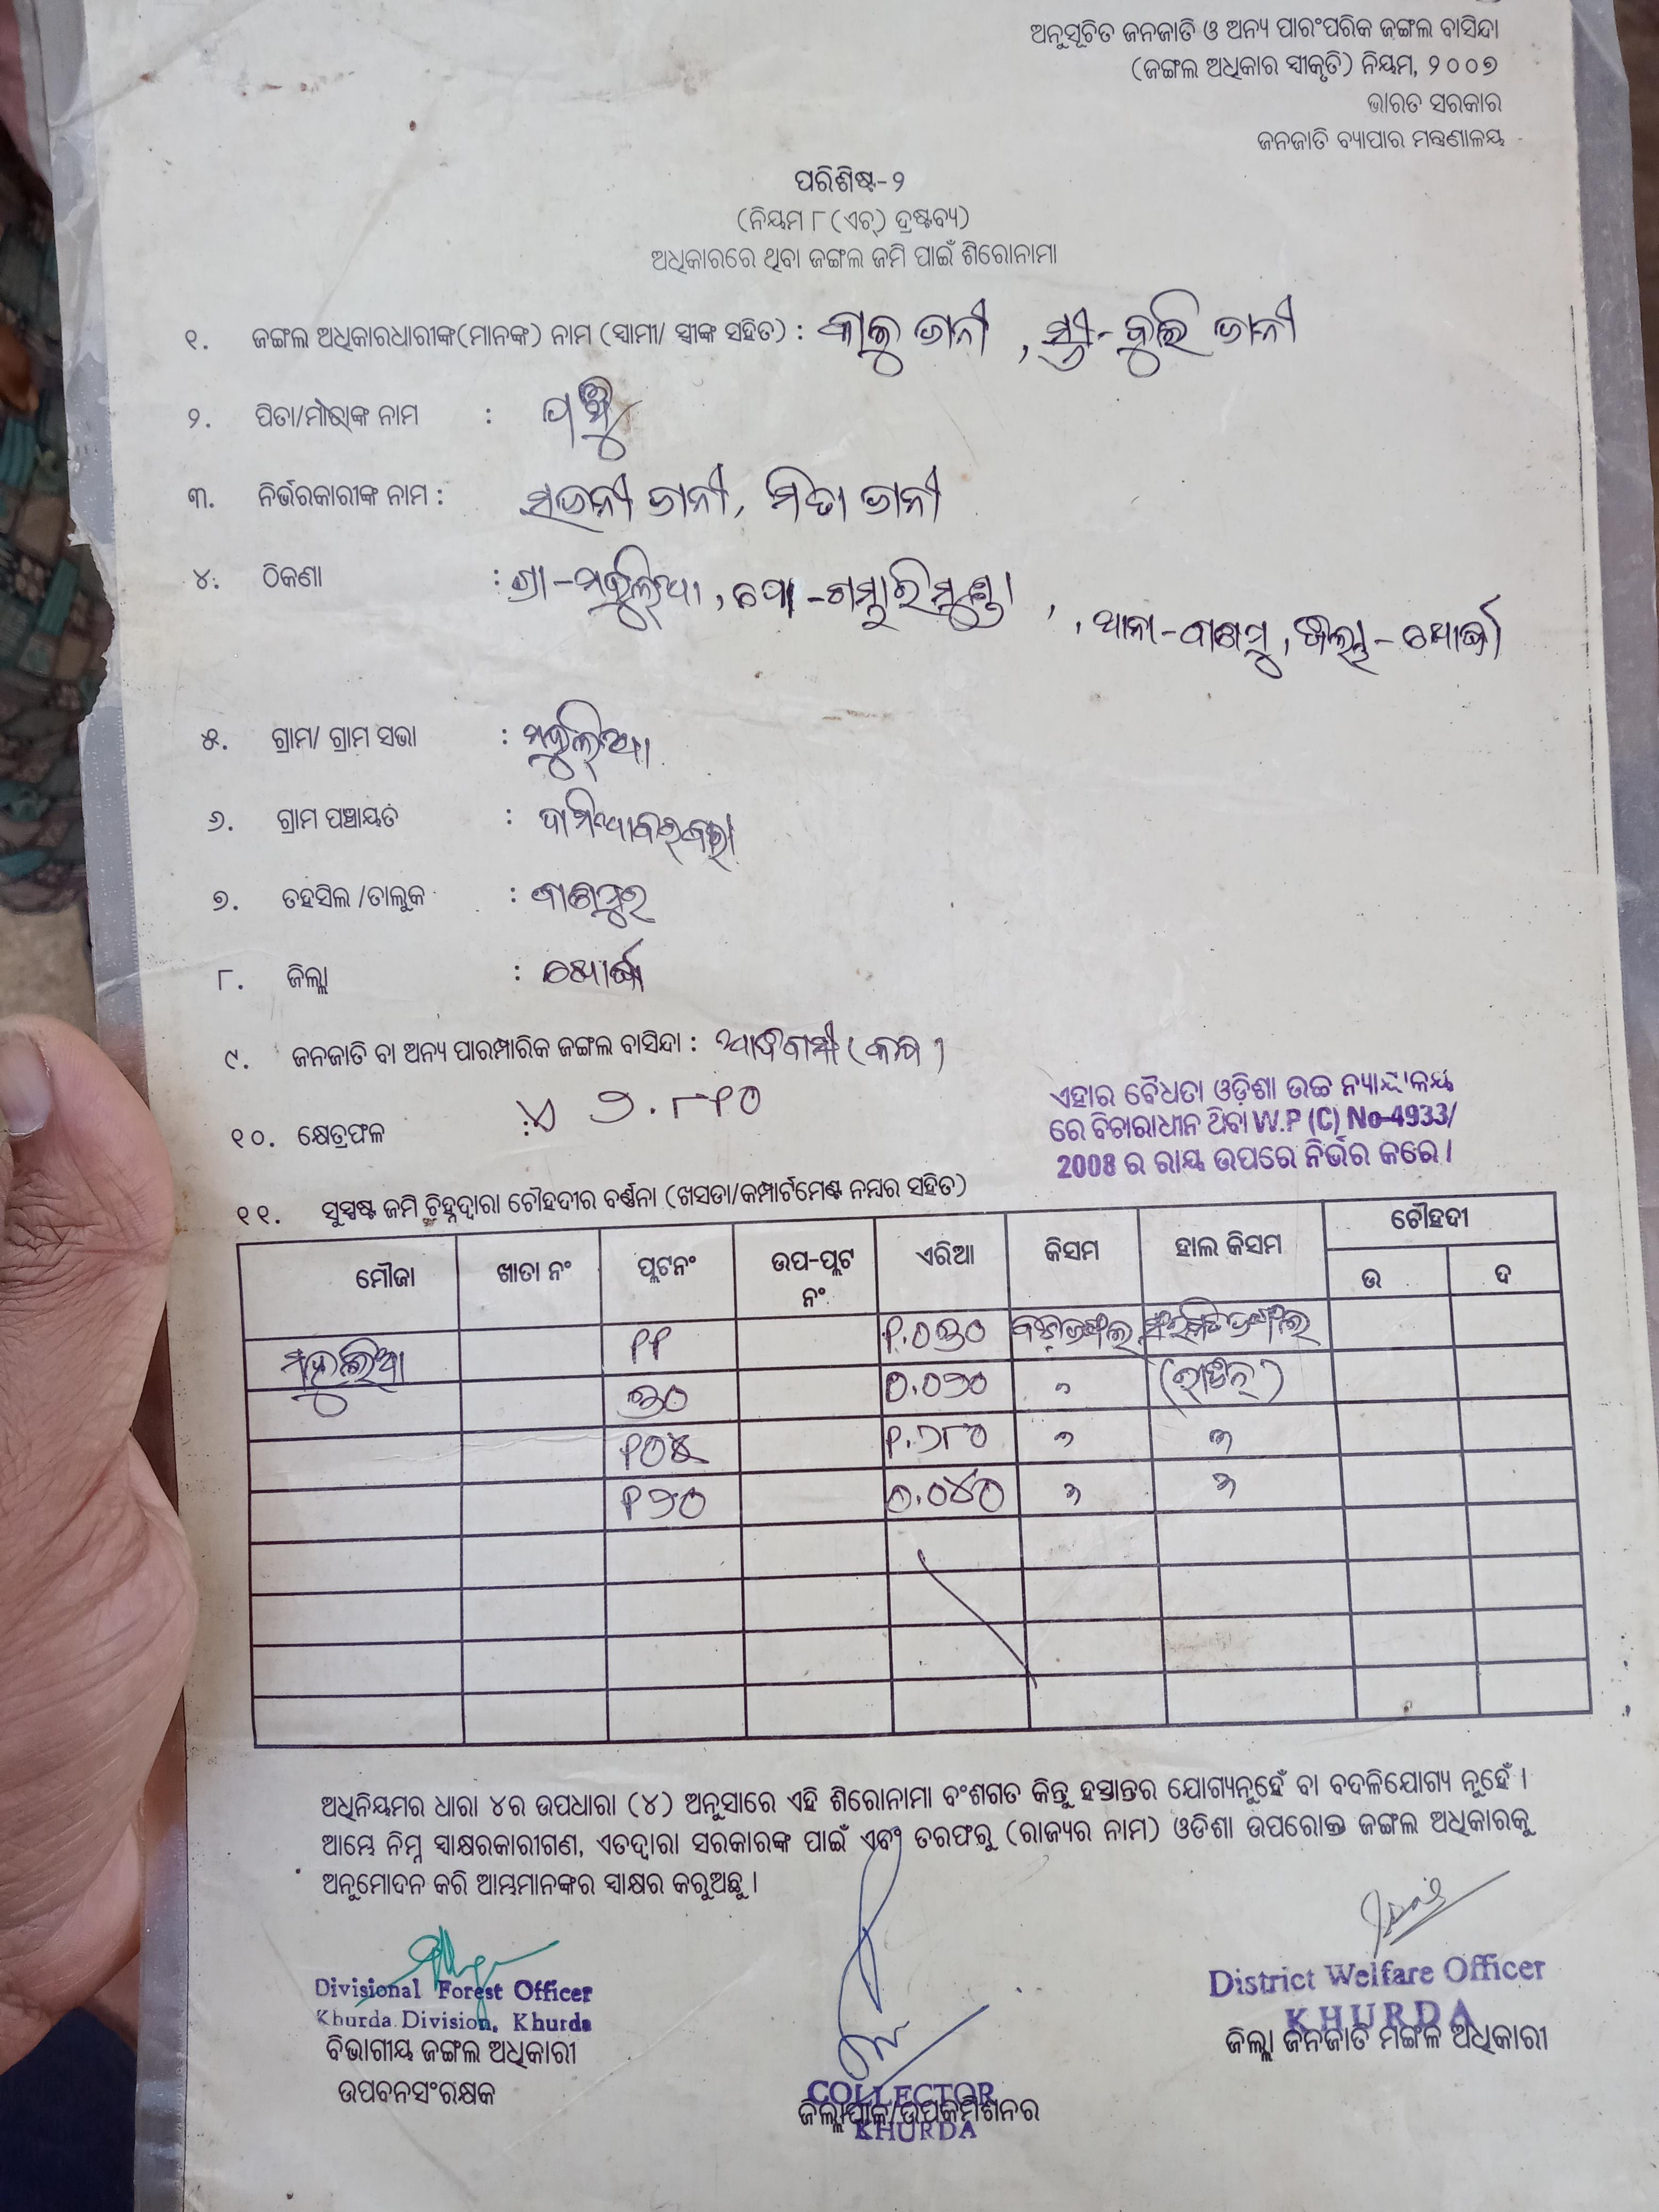 ଅନୁସୂଚିତ ଜନଜାତି ଓ ଅନ୍ୟ ପାରଂପରିକ ଜଙ୍ଗଲ ବାସିନ୍ଦା
(ଜଙ୍ଗଲ ଅଧିକାର ସ୍ୱୀକୃତି) ନିୟମ, ୨୦୦୭
ଭାରତ ସରକାର
ଜନଜାତି ବ୍ୟାପାର ମନ୍ତ୍ରଣାଳୟ
ପରିଶିଷ୍ଟ-୨
(ନିୟମ ୮ (ଏଚ୍) ଦ୍ରଷ୍ଟବ୍ୟ)
ଅଧିକାରରେ ଥିବା ଜଙ୍ଗଲ ଜମି ପାଇଁ ଶିରୋନାମା
୧. ଜଙ୍ଗଲ ଅଧିକାରଧାରୀଙ୍କ(ମାନଙ୍କ) ନାମ (ସ୍ୱାମୀ/ ସ୍ତ୍ରୀଙ୍କ ସହିତ) : ଜାନୀ , ସ୍ତ୍ରୀ- ଜାନୀ
୨. ପିତା/ନାମ :
୩. ନିର୍ଭରକାରୀଙ୍କ ନାମ : ଜାନୀ, ମିତା ଜାନୀ
୪. ଠିକଣା : ଗ୍ରା-ମହୁଲିଆ, ପୋ-ଗମ୍ଭାରିମୁଣ୍ଡା
, ଥାନା-ବାଣପୁର, ଜିଲ୍ଲା-ଖୋର୍ଦ୍ଧା
୫. ଗ୍ରାମ/ ଗ୍ରାମ ସଭା : ମହୁଲିଆ
୬. ଗ୍ରାମ ପଞ୍ଚାୟତ :
୭. ତହସିଲ /ତାଲୁକ : ବାଣପୁର
୮. ଜିଲ୍ଲା : ଖୋର୍ଦ୍ଧା
୯. ଜନଜାତି ବା ଅନ୍ୟ ପାରମ୍ପାରିକ ଜଙ୍ଗଲ ବାସିନ୍ଦା : ଆଦିବାସୀ (କନ୍ଧ)
୧୦. କ୍ଷେତ୍ରଫଳ : ୨.୮୧୦
ଏହାର ବୈଧତା ଓଡ଼ିଶା ଉଚ୍ଚ ନ୍ୟାୟାଳୟ
ରେ ବିଚାରାଧୀନ ଥିବା W.P (C) No-4933/
2008 ର ରାୟ ଉପରେ ନିର୍ଭର କରେ ।
୧୧. ସୁସ୍ପଷ୍ଟ ଜମି ଚିହ୍ନଦ୍ୱାରା ଚୌହଦୀର ବର୍ଣ୍ଣନା (ଖସଡା/କମ୍ପାର୍ଟମେଣ୍ଟ ନମ୍ବର ସହିତ)
ମୌଜା ଖାତା ନଂ ପ୍ଲଟନଂ ଉପ-ପ୍ଲଟ ନଂ ଏରିଆ କିସମ ହାଲ କିସମ ଚୌହଦୀ
ଉ ଦ
ମହୁଲିଆ ୧୧ ୧.୦୩୦
୩୦ ୦.୦୨୦ "
୧୦୫ ୧.୬୮୦ " "
୧୨୦ ୦.୦୪୦ " "
ଅଧିନିୟମର ଧାରା ୪ର ଉପଧାରା (୪) ଅନୁସାରେ ଏହି ଶିରୋନାମା ବଂଶଗତ କିନ୍ତୁ ହସ୍ତାନ୍ତର ଯୋଗ୍ୟନୁହେଁ ବା ବଦଳିଯୋଗ୍ୟ ନୁହେଁ ।
ଆମ୍ଭେ ନିମ୍ନ ସ୍ୱାକ୍ଷରକାରୀଗଣ, ଏତଦ୍ୱାରା ସରକାରଙ୍କ ପାଇଁ ଏବଂ ତରଫରୁ (ରାଜ୍ୟର ନାମ) ଓଡିଶା ଉପରୋକ୍ତ ଜଙ୍ଗଲ ଅଧିକାରକୁ
ଅନୁମୋଦନ କରି ଆମ୍ଭମାନଙ୍କର ସ୍ୱାକ୍ଷର କରୁଅଛୁ ।
Divisional Forest Officer
Khurda Division, Khurda
ବିଭାଗୀୟ ଜଙ୍ଗଲ ଅଧିକାରୀ
ଉପବନସଂରକ୍ଷକ
COLLECTOR
ଜିଲ୍ଲାପାଳ/ଉପକମିଶନର
KHURDA
District Welfare Officer
KHURDA
ଜିଲ୍ଲା ଜନଜାତି ମଙ୍ଗଳ ଅଧିକାରୀ